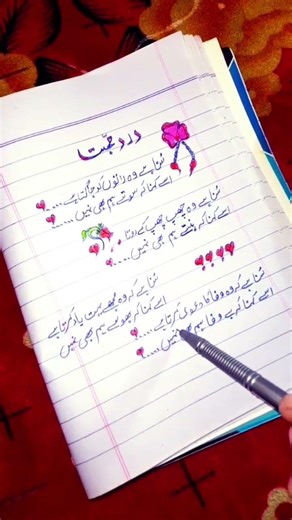 درد محبت
سنا ہے وہ راتوں کو جاگتا ہے....
اسے کہنا کہ سوتے ہم بھی نہیں....
سنا ہے وہ چھپ چھپ کے روتا
اسے کہنا کہ ہنستے ہم بھی نہیں....
سنا ہے کہ وہ مجھے بہت یاد کرتا ہے
اسے کہنا کہ بھولے ہم بھی نہیں
سنا ہے کہ وہ وفا کا دعویٰ کرتا ہے....
اسے کہنا کہ بے وفا ہم بھی نہیں....